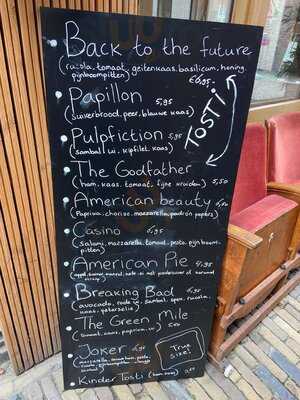 Back to the future
(rucola, tomaat, geitenkaas, basilicum, honing,
pijnboompitten)
€6,95
TOSTI
Papillon 5,95
(suikerbrood, peer, blauwe kaas)
Pulpfiction 5,95
(sambal, ui, kipfilet, kaas)
The Godfather
(ham, kaas, tomaat, fijne kruiden) 5,50
American beauty 6,50
(Paprika, chorizo, mozzarella, padrón papers)
Casino 6,95
(salami, mozzarella, tomaat, pesto, pijnboom-
pitten)
American Pie 4,95
(appel, kaneel,
Breaking Bad 6,95
(avocado, rode ui, sambal, spek, rucola,
kaas, peterselie)
The Green Mile
kaas, paprika, ui) 5,50
Joker 6,95
mozzarella,
True
Size!
Kinder Tosti (ham, kaas)